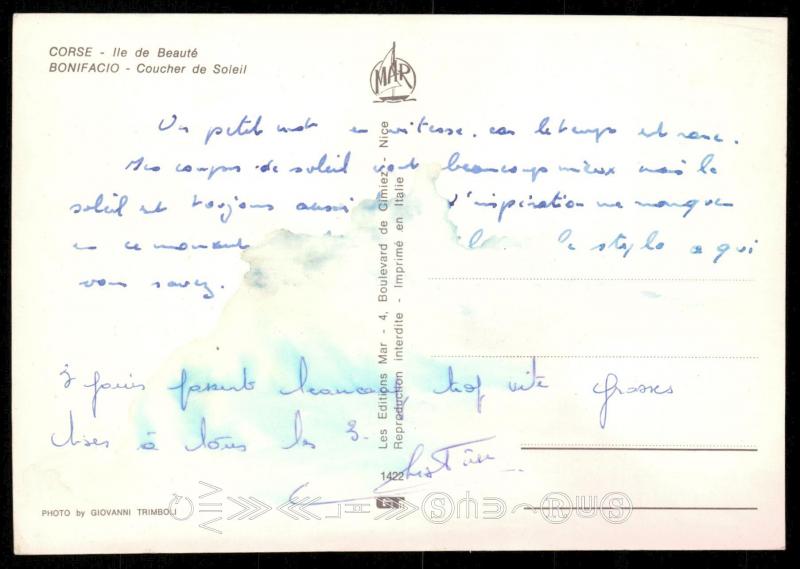 CORSE - Ile de Beauté
BONIFACIO - Coucher de Soleil
MAR
Un petit mot en vitesse, car le temps est rare.
Mes coups de soleil vont beaucoup mieux mais le
soleil est toujours aussi l'inspiration me manque
en ce moment le stylo a qui
vous savez.
3 jours passent beaucoup trop vite Grosses
bises à tous les 3.
Les Editions Mar - 4, Boulevard de Cimiez - Nice
Reproduction interdite - Imprimé en Italie
1422
PHOTO by GIOVANNI TRIMBOLI